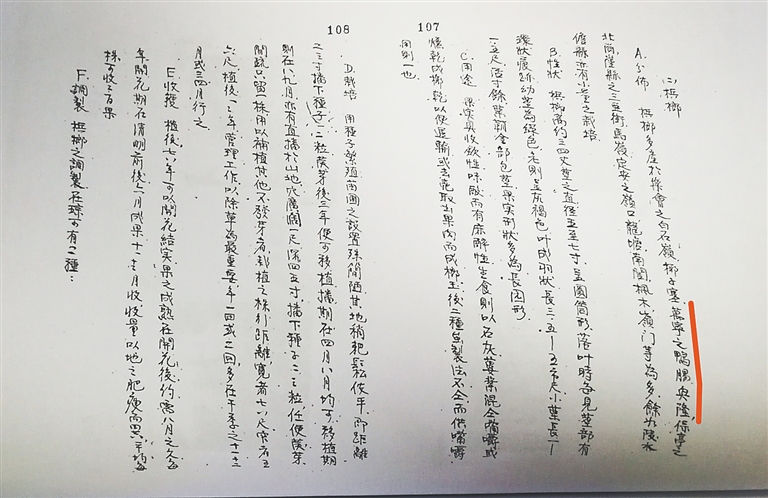 107
梹榔
A.分佈 梹榔多產於樂會之白石嶺、椰子寨、萬寧之鴨腸、興隆、保亭之
縣之三亞街、馬嶺、定安之嶺口、龍塘、南閭、楓木、嶺门等為多、餘如陵水
儋縣亦有少量之栽培
B.性狀 梹榔高約三四丈莖之直徑五至七寸呈圓筒形落叶時每見莖部有
環狀痕跡幼莖為綠色老則呈灰褐色叶成羽狀長三.五—五市尺小葉長一
一.五尺濶寸餘葉鞘全部包莖果实形狀多為長圓形
C.用途 果实具收斂性味澀而有麻醉性生食則以石灰蔞葉混合嚼或
燻乾成榔乾以便運輸或去壳取出果肉而成榔玉後二種製法不仝而供嚼
用則一也
108
D.栽培 用種子繁殖苗圃之設置殊簡陋其地稍耙鬆使平、即距離
二三寸播下種子一二粒發芽後三年便可移植播期在四月八月均可移植期
則在八九月亦有直播於山地穴廣濶一尺深四五寸播下種子二三粒任便發芽
間疏只留一株用以補植其他不發芽者栽植之株行距離寬者七八尺窄者五
六尺植後一二年管理工作以除草為最重要年一回或二回多在干季之十二
月或三四月行之
E.收穫 植後七八年可以開花結实果之成熟在開花後約需八月之久
年開花期在清明前後六月成果十一十二月收收量以地之肥瘦而異平均每
株可收二百果
F.調製 梹榔之調製在瓊可有二種: